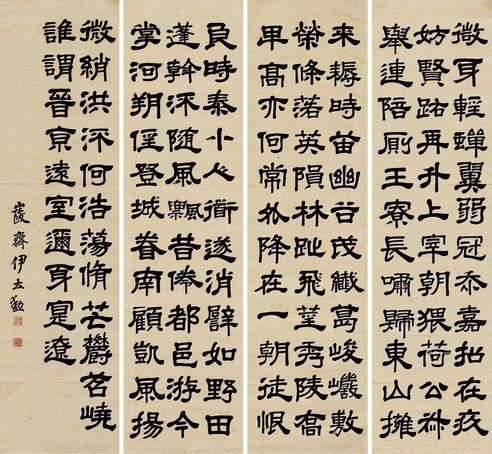 微身輕蟬翼弱冠忝嘉招在疚
妨賢路再升上宰朝猥荷公叔
舉連陪廁王寮長嘯歸東山擁
耒耨時苗幽谷茂纖葛峻巖敷
榮條落英隕林趾飛莖秀陵喬
卑高亦何常升降在一朝徒恨
良時泰小人道遂消譬如野田
蓬斡流隨風飄昔倦都邑游今
掌河朔徭登城眷南顧凱風揚
微綃洪流何浩蕩脩芒鬱苕嶢
誰謂晉京遠室邇身寔遼
峻齋伊立勳